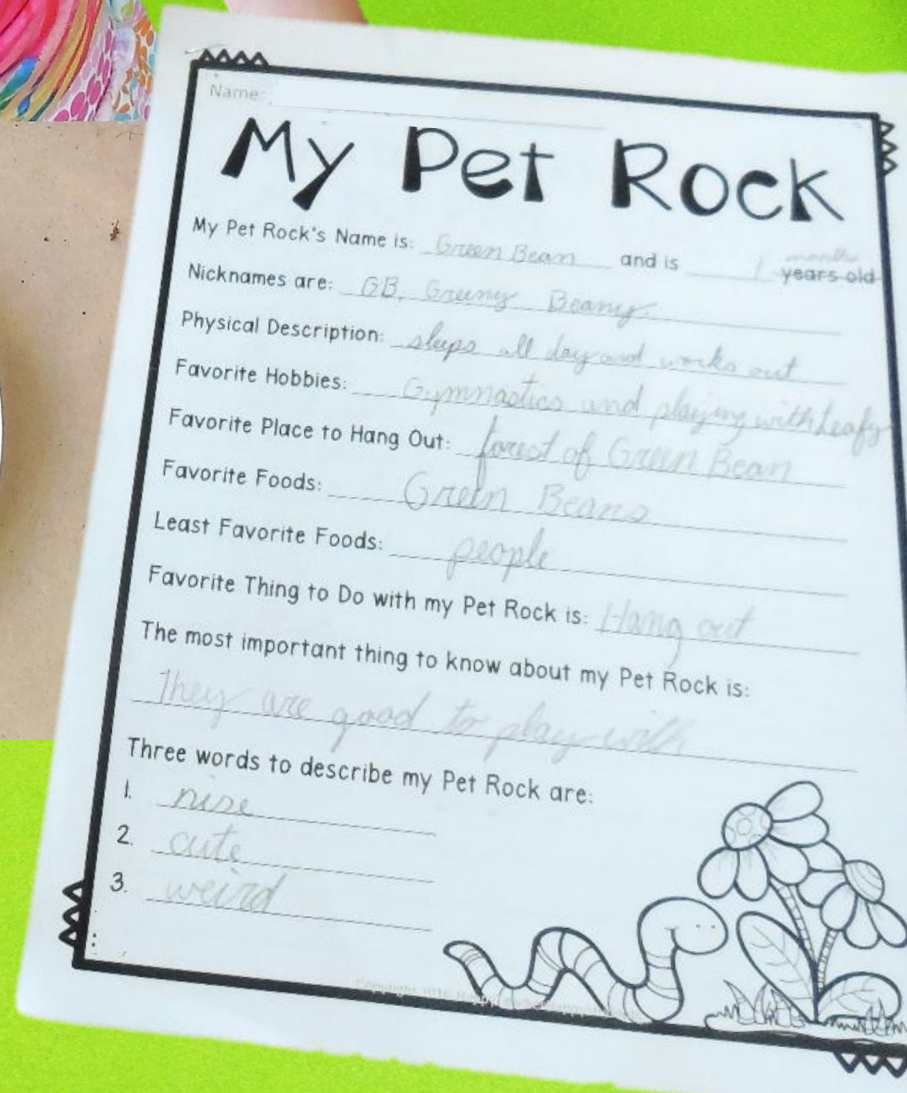 Name:
My Pet Rock
My Pet Rock's Name is: Green Bean and is 1 months years old
Nicknames are: GB, Greeny Beany
Physical Description: sleeps all day and works out
Favorite Hobbies: Gymnastics and playing with Leafs
Favorite Place to Hang Out: forest of Green Bean
Favorite Foods: Green Beans
Least Favorite Foods: people
Favorite Thing to Do with my Pet Rock is: Hang out
The most important thing to know about my Pet Rock is:
They are good to play with
Three words to describe my Pet Rock are:
1. nise
2. cute
3. weird